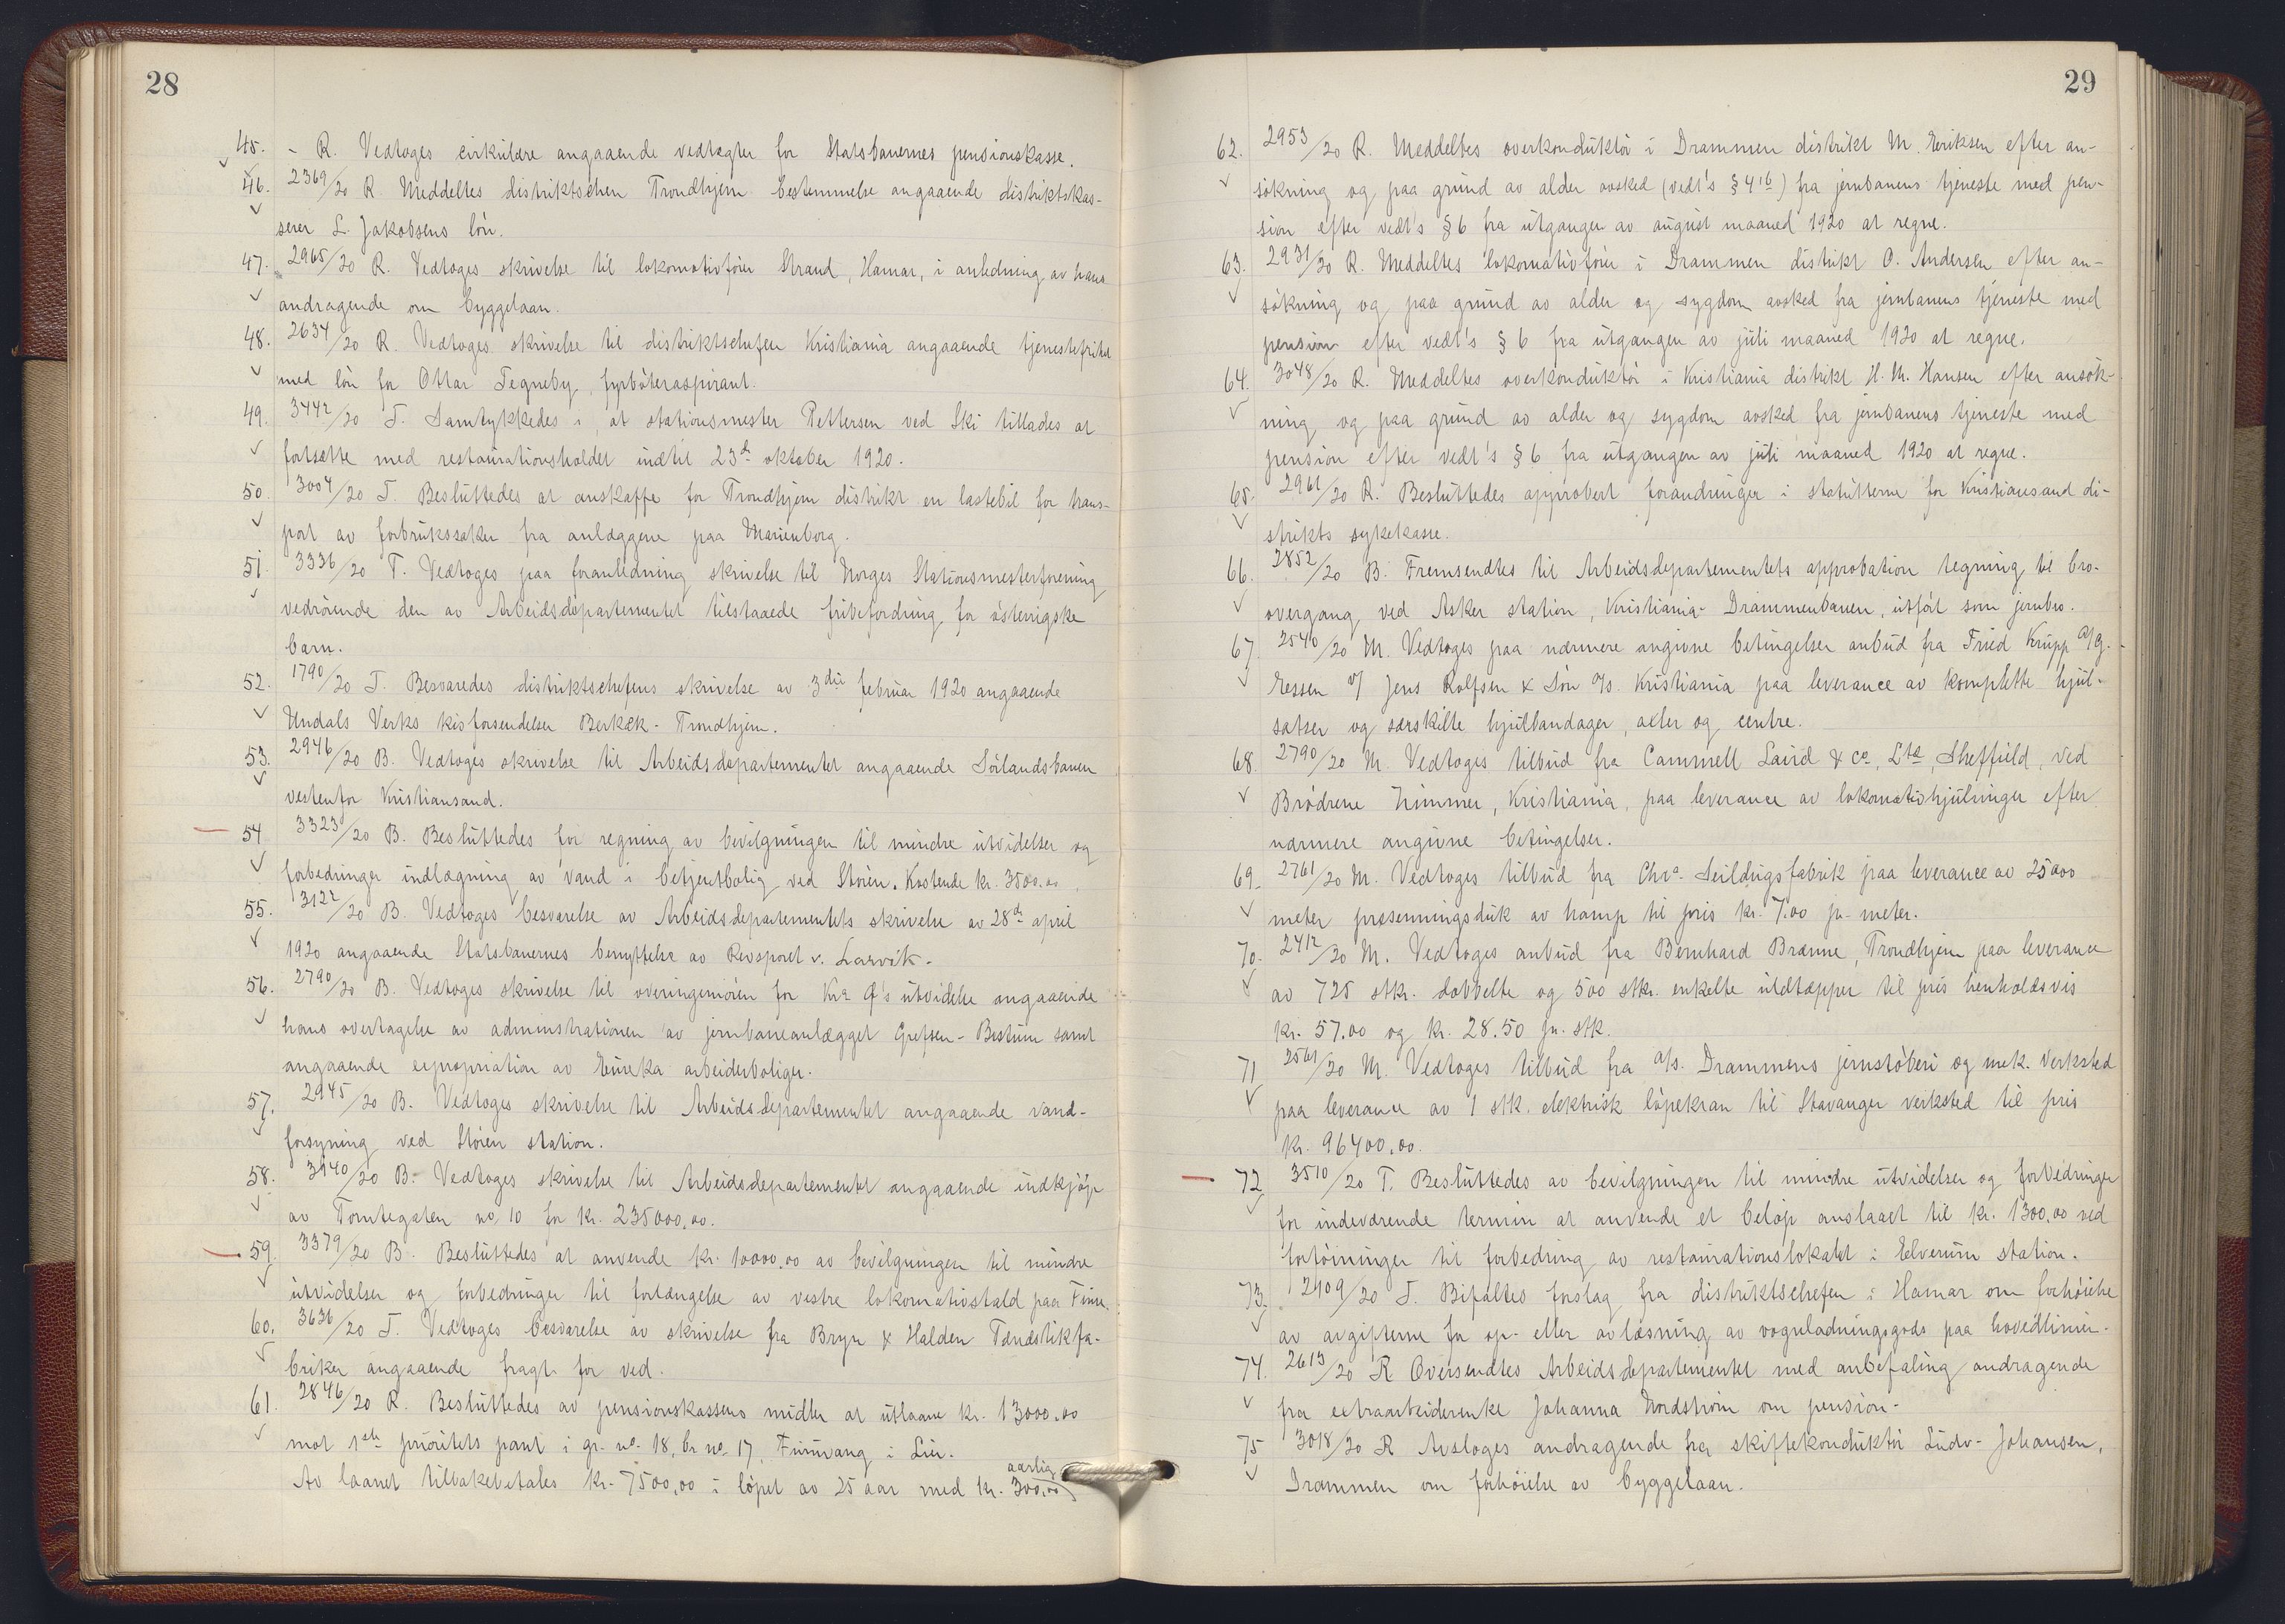 28
45. - R. Vedtoges cirkulære angaaende vedtægter for Statsbanernes pensionskasse.
46. 2369/20 R. Meddeltes distriktschefen Trondhjem bestemmelse angaaende distriktskas-
serer L. Jakobsens lön.
47. 2965/20 R. Vedtoges skrivelse til lokomotivförer Strand, Hamar, i anledning av hans
andragende om byggelaan.
48. 2634/20 R. Vedtoges skrivelse til distriktschefen Kristiania angaaende tjenestefrihet
med lön for Ottar Tegneby, fyrböteraspirant.
49. 3442/20 T. Samtykkedes i, at stationsmester Pettersen ved Ski tillades at
fortsætte med restaurationsholdet indtil 23de oktober 1920.
50. 3004/20 T. Besluttedes at anskaffe for Trondhjem distrikt en lastebil for trans-
port av forbrukssaker fra anlæggene paa Marienborg.
51. 3336/20 T. Vedtoges paa foranledning skrivelse til Norges Stationsmesterforening
vedrörende den av Arbeidsdepartementet tilstaaede fribefordring for österrigske
barn.
52. 1790/20 T. Besvaredes distriktschefens skrivelse av 3die februar 1920 angaaende
Undals Verks kisforsendelser Berkæk - Trondhjem.
53. 2946/20 B. Vedtoges skrivelse til Arbeidsdepartementet angaaende Sörlandsbanen
vestenfor Kristiansand.
54. 3323/20 B. Besluttedes for regning av bevilgningen til mindre utvidelser og
forbedringer indlægning av vand i betjentbolig ved Stören. Kostende kr. 3500.00.
55. 3122/20 B. Vedtoges besvarelse av Arbeidsdepartementets skrivelse av 28de april
1920 angaaende Statsbanernes benyttelse av Revsporet v. Larvik.
56. 2790/20 B. Vedtoges skrivelse til overingeniören for Kra Ø's utvidelse angaaende
hans overtagelse av adminstrationen av jernbaneanlægget Grefsen - Bestum samt
angaaende expropriation av Eureka arbeiderboliger.
57. 2945/20 B. Vedtoges skrivelse til Arbeidsdepartementet angaaende vand-
forsyning ved Stören station.
58. 3940/20 B. Vedtoges skrivelse til Arbeidsdepartementet angaaende indkjöp
av Tomtegaten no 10 for kr. 235000.00.
59. 3379/20 B. Besluttedes at anvende kr. 10000.00 av bevilgningen til mindre
utvidelser og forbedringer til forlængelse av vestre lokomotivstald paa Finse.
60. 3636/20 T. Vedtoges besvarelse av skrivelse fra Bryn & Halden Tændstikfa-
briker angaaende fragt for ved.
61. 2846/20 R. Besluttedes av pensionskassens midler at utlaane kr. 13000.00
mot 1ste prioritets pant i gr. no. 18, br. no. 17, Furuvang i Lier.
Av laanet tilbakebetales kr. 7500.00 i löpet av 25 aar med kr. 300.00 aarlig
29
62. 2953/20 R. Meddeltes overkonduktör i Drammen distrikt M. Eriksen efter an-
sökning og paa grund av alder avsked (vedt's § 4 1b) fra jernbanens tjeneste med pen-
sion efter vedt's § 6 fra utgangen av august maaned 1920 at regne.
63. 2931/20 R. Meddeltes lokomotivförer i Drammen distrikt O. Andersen efter an-
sökning og paa grund av alder og sygdom avsked fra jernbanens tjeneste med
pension efter vedt's § 6 fra utgangen av juli maaned 1920 at regne.
64. 3048/20 R. Meddeltes overkonduktör i Kristiania distrikt H. M. Hansen efter ansök-
ning og paa grund av alder og sygdom avsked fra jernbanens tjeneste med
pension efter vedt's § 6 fra utgangen av juli maaned 1920 at regne.
65. 2961/20 R. Besluttedes approbert forandringer i statutterne for Kristiansand di-
strikts sykekasse.
66. 2852/20 B. Fremsendtes til Arbeidsdepartementets approbation tegning til bro-
overgang ved Asker station, Kristiania - Drammenbanen, utfört som jernbro.
67. 2540/20 M. Vedtoges paa nærmere angivne betingelser anbud fra Fried Krupp A/G.
Essen v/ Jens Rolfsen & Sön A/s. Kristiania paa leverance av komplette hjul-
satser og særskilte hjulbandager, axler og centre.
68. 2790/20 M. Vedtoges tilbud fra Cammell Laird & Co, Ltd, Sheffield, ved
Brödrene Zimmer, Kristiania, paa leverance av lokomotivhjulringer efter
nærmere angivne betingelser.
69. 2761/20 M. Vedtoges tilbud fra Chra. Seildugsfabrik paa leverance av 25000
meter presenningsduk av hamp til pris kr. 7.00 pr. meter.
70. 2412/20 M. Vedtoges anbud fra Bernhard Brænne, Trondhjem paa leverance
av 725 stk. dobbelte og 500 stk. enkelte uldtæpper til pris henholdsvis
kr. 57.00 og kr. 28.50 pr. stk.
71 2561/20 M. Vedtoges tilbud fra A/s. Drammens jernstöberi og mek. Verksted
paa leverance av 1 stk. elektrisk löpekran til Stavanger verksted til pris
kr. 96400.00.
72 3510/20 T. Besluttedes av bevilgningen til mindre utvidelser og forbedringer
for indeværende termin at anvende et belöp anslaaet til kr. 1300.00 ved
fortöininger til forbedring av restaurationslokalet i Elverum station.
73. 2909/20 T. Bifaltes forslag fra distriktschefen i Hamar om forhöielse
av avgifterne for op- eller avlæsning av vognladningsgods paa hovedlinier.
74. 2613/20 R Oversendtes Arbeidsdepartementet med anbefaling andragende
fra extraarbeiderenke Johanna Nordström om pension.
75 3018/20 R Avsloges andragende fra skiftekonduktör Ludv. Johansen,
Drammen om forhöielse av byggelaan.